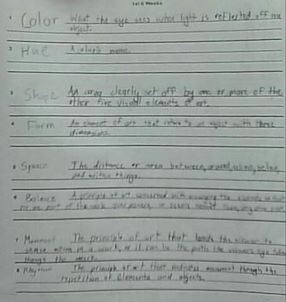 1st 6 Weeks
1 Color What the eye sees when light is reflected off an
object.
2 Hue A color's name.
3 Shape An area clearly set off by one or more of the
other five visual elements of art.
4 Form An element of art that refers to an object with three
dimensions.
5 Space The distance or area between, around, above, below,
and within things.
6 Balance A principle of art concerned with arranging the elements so that
no one part of the work
7 Movement The principle of art that leads the viewer to
sense action in a work, or it can be the path the viewer's eye follows
through the work.
8 Rhythm The principle of art that indicates movement through the
repetition of elements and objects.